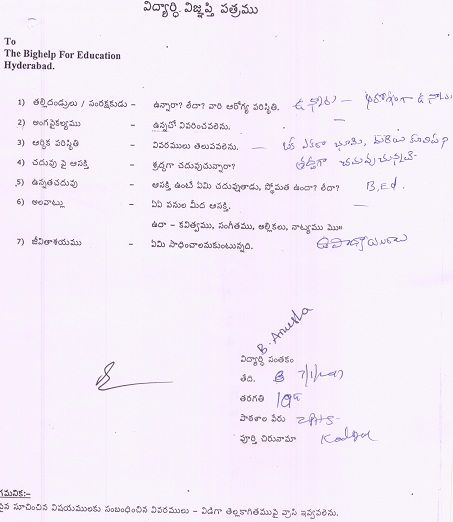 విద్యార్థి విజ్ఞప్తి పత్రము
To
The Bighelp For Education
Hyderabad.
1) తల్లిదండ్రులు / సంరక్షకుడు - ఉన్నారా? లేదా? వారి ఆరోగ్య పరిస్థితి. ఉన్నారు -
2) అంగవైకల్యము - ఉన్నచో వివరించవలెను. -
3) ఆర్థిక పరిస్థితి - వివరములు తెలుపవలెను. -
4) చదువు పై ఆసక్తి - శ్రద్ధగా చదువుచున్నారా? శ్రద్ధగా చదువుచున్నది
5) ఉన్నతచదువు - ఆసక్తి ఉంటే ఏమి చదువుతాడు, స్తోమత ఉందా? లేదా? B.Ed.
6) అలవాట్లు - ఏఏ పనుల మీద ఆసక్తి. -
ఉదా - కవిత్వము, సంగీతము, అల్లికలు, నాట్యము మొ॥
7) జీవితాశయము - ఏమి సాధించాలనుకుంటున్నది. ఉపాధ్యాయురాలు
B. Anusha
విద్యార్థి సంతకం
తేది.
తరగతి 10th
పాఠశాల పేరు ZPHS-
పూర్తి చిరునామా
గమనిక:-
పైన సూచించిన విషయములకు సంబంధించిన వివరములు - విడిగా తెల్లకాగితముపై వ్రాసి ఇవ్వవలెను.